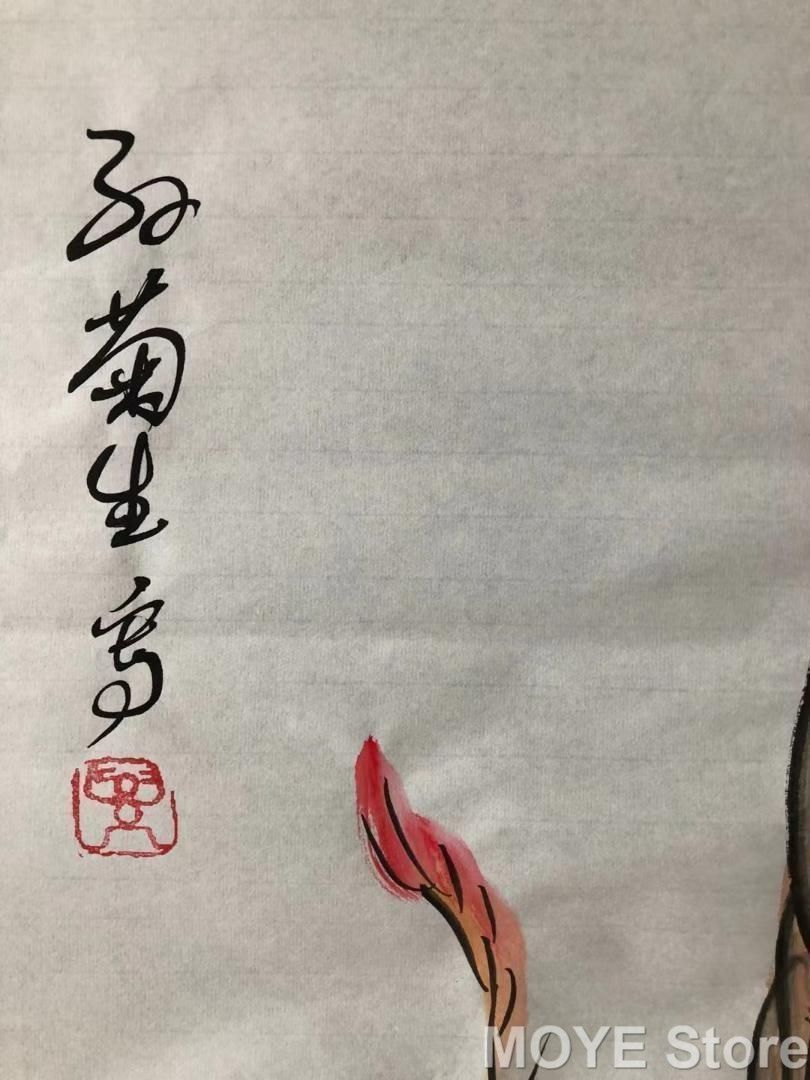 孙菊生写
MOYE Store